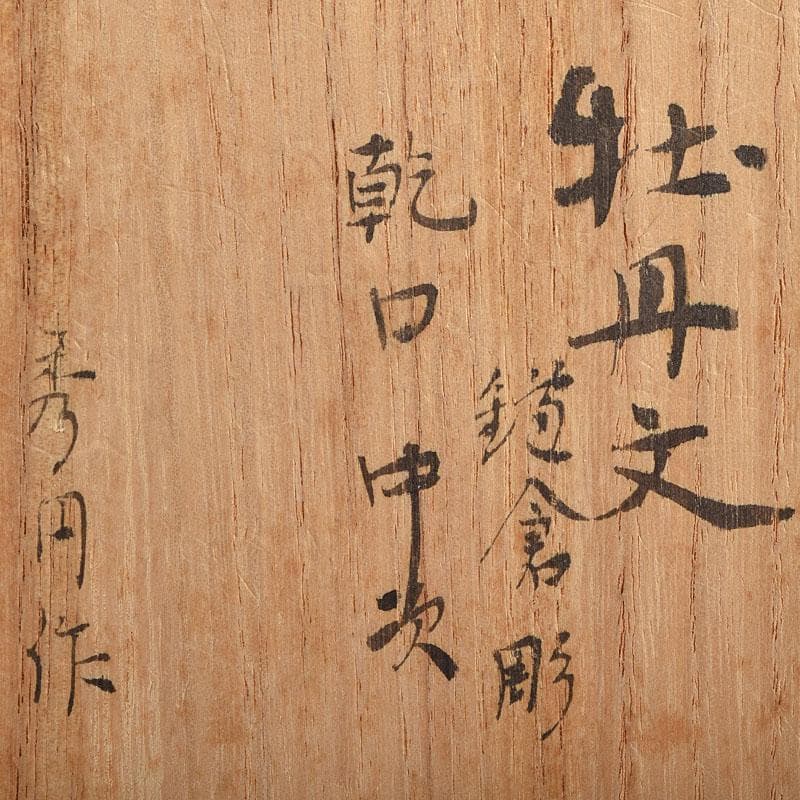 牡丹文
鎌倉彫
乾口中次
秀円作